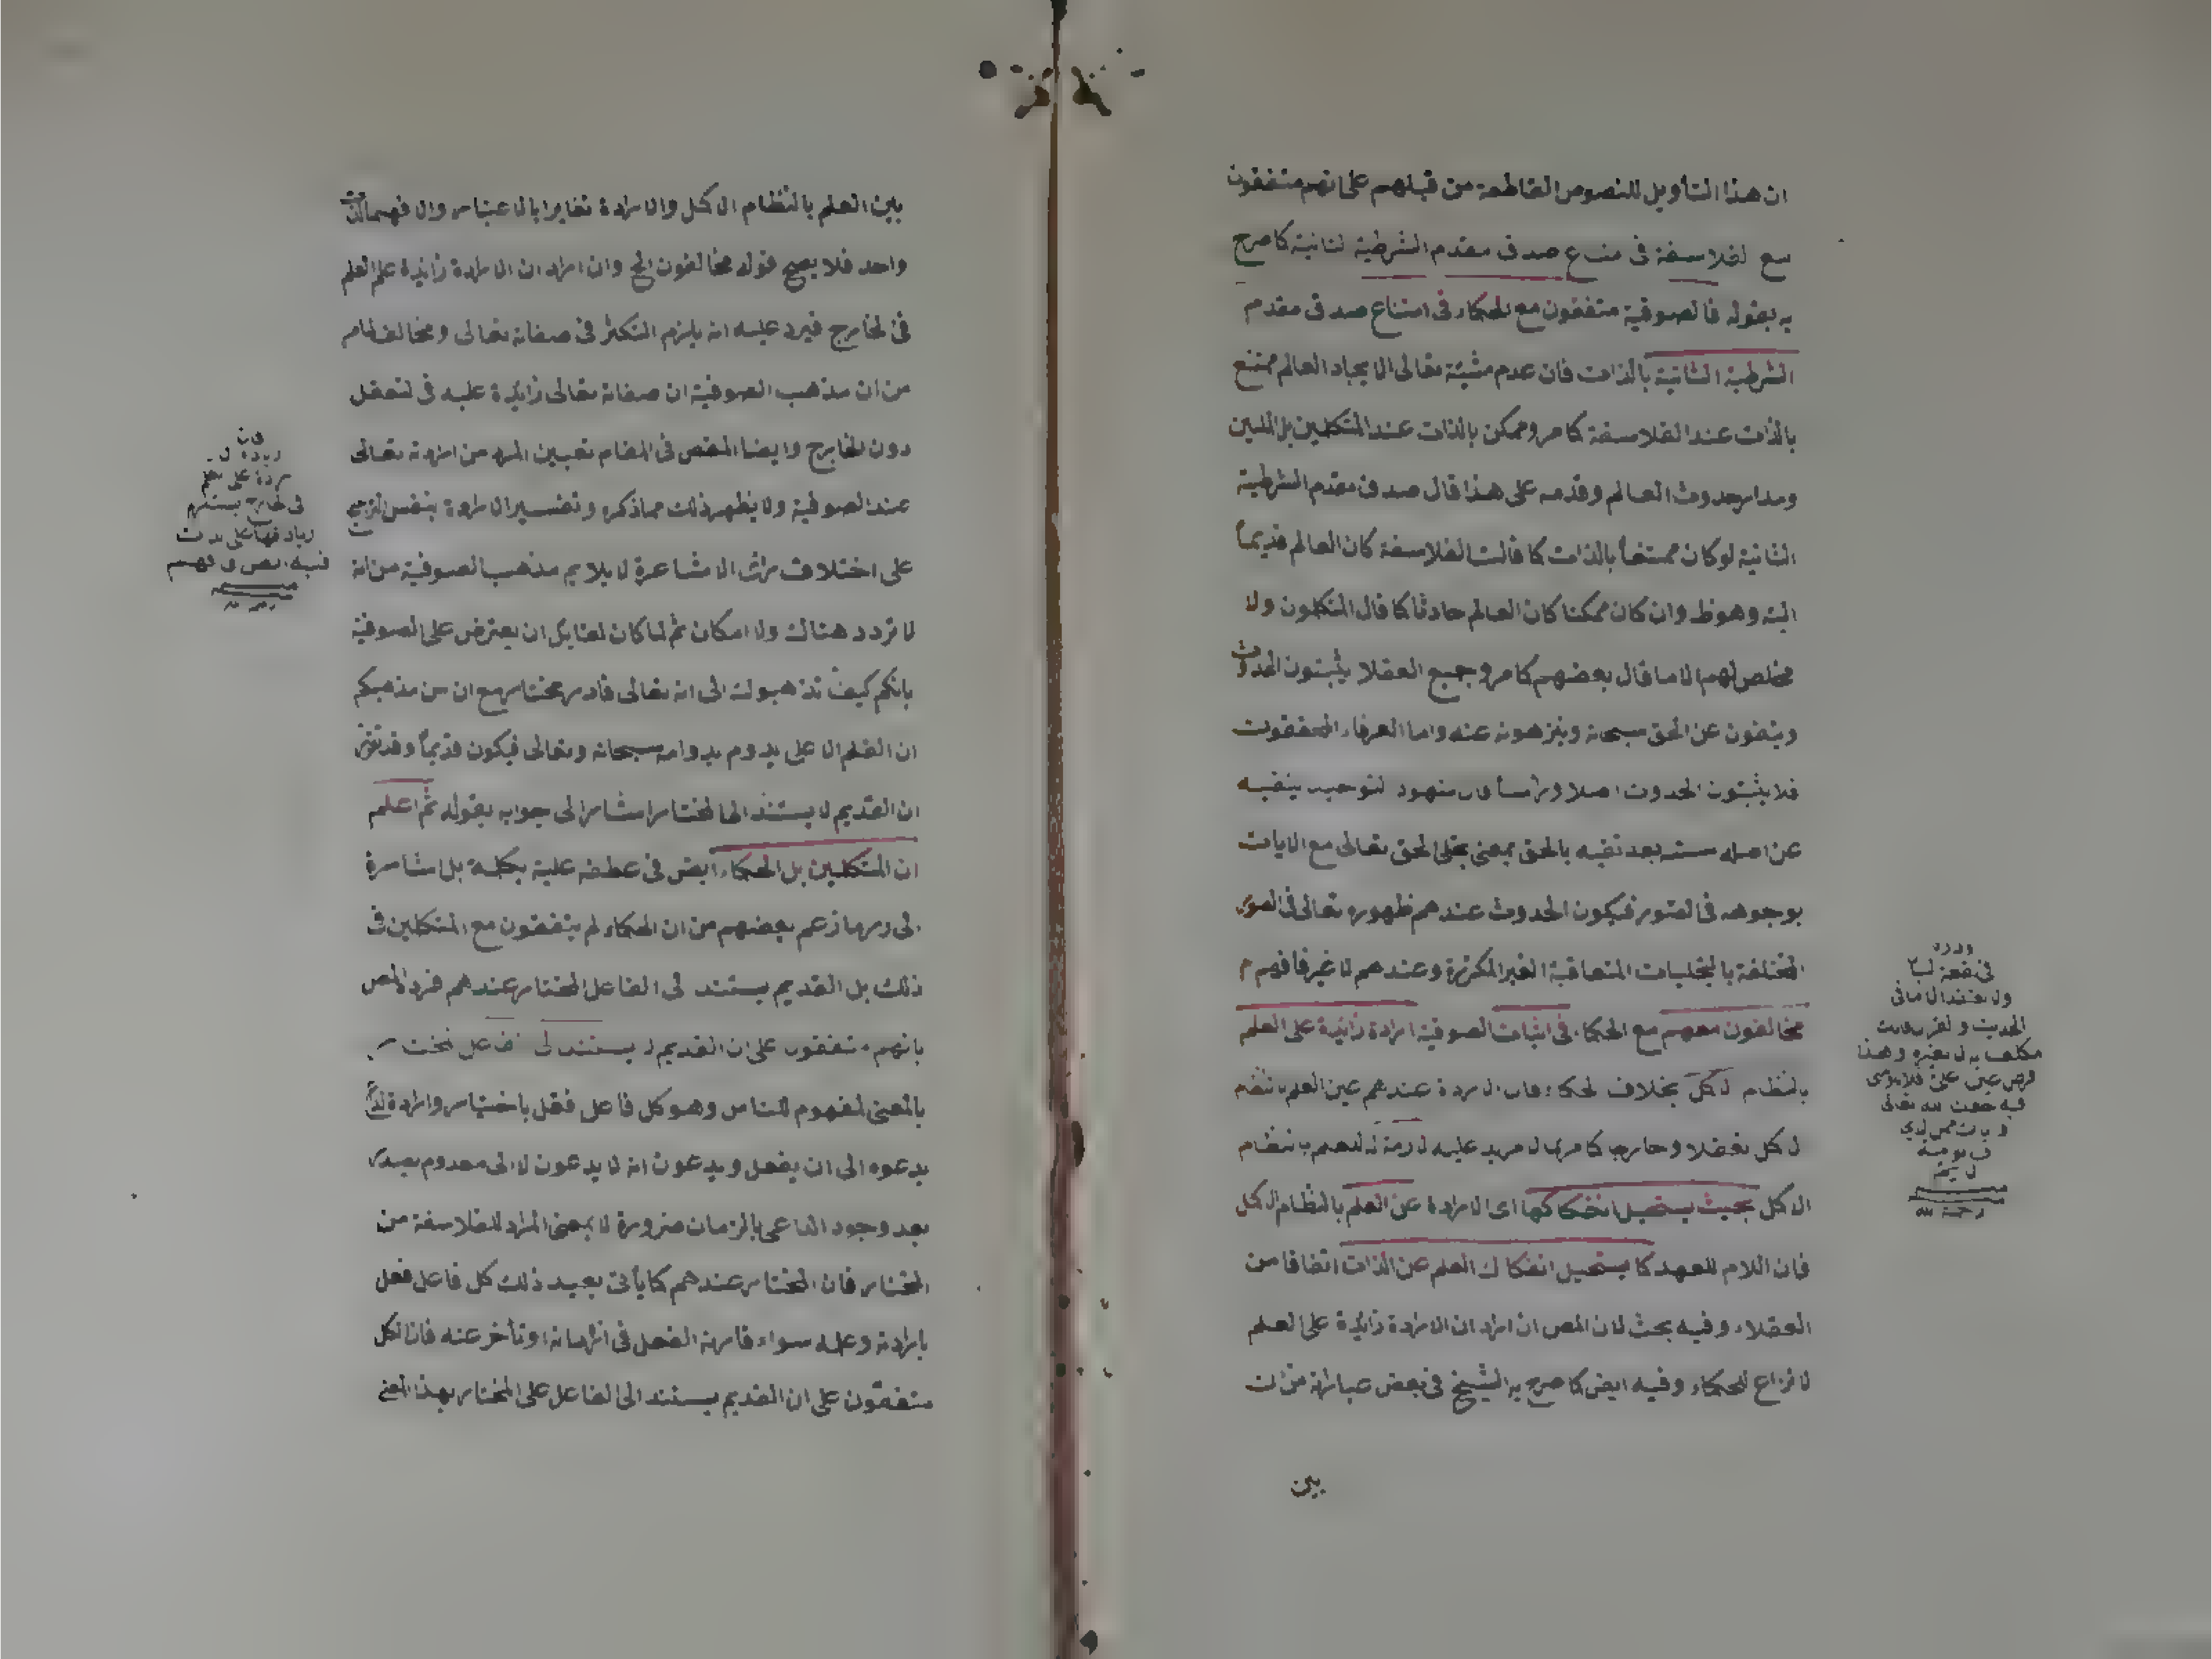 ان هذا التأويل للنصوص القاطعة من قبلهم على انهم متفقون
مع لفلاسفة فى متناع صدق مقدم الشرطية لثانية كما صرح
به بقوله فالصوفية متفقون مع الحكماء فى امتناع صدق مقدم
الشرطية الثانية بالذات فان عدم مشيئة تعالى الايجاد العالم ممتنع
بالذات عند الفلاسفة كما مر وممكن بالذات عند المتكلمين بل المليين
ومدار حدوث العالم وقدمه على هذا قال صدق مقدم الشرطية
الثانية لو كان ممتنعاً بالذات كما قالت الفلاسفة كان العالم قديماً
البتة وهو ظ وان كان ممكنا كان العالم حادثا كما قال المتكلمون ولا
مخلص لهم الا ما قال بعضهم كما مر وجميع العقلا يثبتون الحدوث
وينفون عن الحق سبحانه وينزهونه عنه واما العرفاء المحققون
فلا يثبتون الحدوث اصلا ورأسا فان شهود لتوحيد ينفيه
عن اصله بعد نفيه بالحق بمعنى تجلى الحق تعالى مع الايات
بوجوهه فى الصور فيكون الحدوث عندهم ظهوره تعالى فى الصور
المختلفة بالتجليات المتعاقبة الغير المكررة وعندهم لا غير فافهم م
مخالفون معهم مع الحكماء فى اثبات الصوفية ارادة زائدة على العلم
بالنظام لاكل بخلاف لحكماء فان الارادة عندهم عين العلم بالنظام
لاكل تعقلا وخارجا كما مر لا مزيد عليه لازمة له للعلم بالنظام
الاكل بحيث يستحيل انفكاكها اى الارادة عن العلم بالنظام الاكل
فان اللام للعهد كما يستحيل انفكاك العلم عن الذات اتفاقا من
العقلاء وفيه بحث لان المص ان اراد ان الارادة زائدة على العلم
لا نزاع للحكماء وفيه ايض كما صرح به الشيخ فى بعض عباراته من ان
بين
فى
ولا يعتقد الا ما فى
الحديث و
مكلف به لا بغيره وهذا
فرض عين على
فيه
رحمة الله
بين العلم بالنظام الاكل والارادة تغايرا بالاعتبار والا فهما لذات
واحد فلا يصح قوله مخالفون الخ وان اراد ان الارادة زائدة على العلم
فى لخارج فيرد عليه انه يلزم التكثر فى صفاته تعالى ومخالف لما مر
من ان مذهب الصوفية ان صفاته تعالى زائدة عليه فى لتعقل
دون الخارج وايضا المقص فى المقام تعيين المراد من ارادته تعالى
عند الصوفية ولا يظهر ذلك مما ذكره وتفسير الارادة بنفس الترجيح
على اختلاف مراتب الاشاعرة لا يلايم مذهب الصوفية من انه
لا تردد هناك ولا امكان ثم لما كان لقايل ان يعترض على الصوفية
بانكم كيف تذهبون الى انه تعالى قادر مختار مع ان من مذهبكم
ان القلم الاعلى يدوم بدوامه سبحانه وتعالى فيكون قديماً وقد تقرر
ان القديم لا يستند الى المختار اشار الى جوابه بقوله ثم اعلم
ان المتكلمين بل الحكماء ايض فى عطفه عليه بكلمة بل اشارة
الى رد ما زعم بعضهم من ان الحكماء لم يتفقون مع المتكلمين فى
ذلك بل القديم يستند لى الفاعل المختار عندهم فرد المص
بانهم متفقون على ان القديم لا يستند لى الفاعل المختار
بالمعنى المفهوم للناس وهو كل فاعل فعل باختيار وارادة
يدعوه الى ان يفعل ويدعون انه لا يدعون الا الى معدوم يصدر
بعد وجود الداعى بالزمان ضرورة لا بمعنى المراد للفلاسفة من
المختار فان المختار عندهم كما يأتى بعيد ذلك كل فاعل فعل
بارادته وعلمه سواء قارنه الفعل فى ازمانه او تأخر عنه فان الكل
متفقون على ان القديم يستند الى الفاعل على المختار بهذا المعنى
فان
زيادة
على العلم
فى لخارج يستلزم
زيادتها على